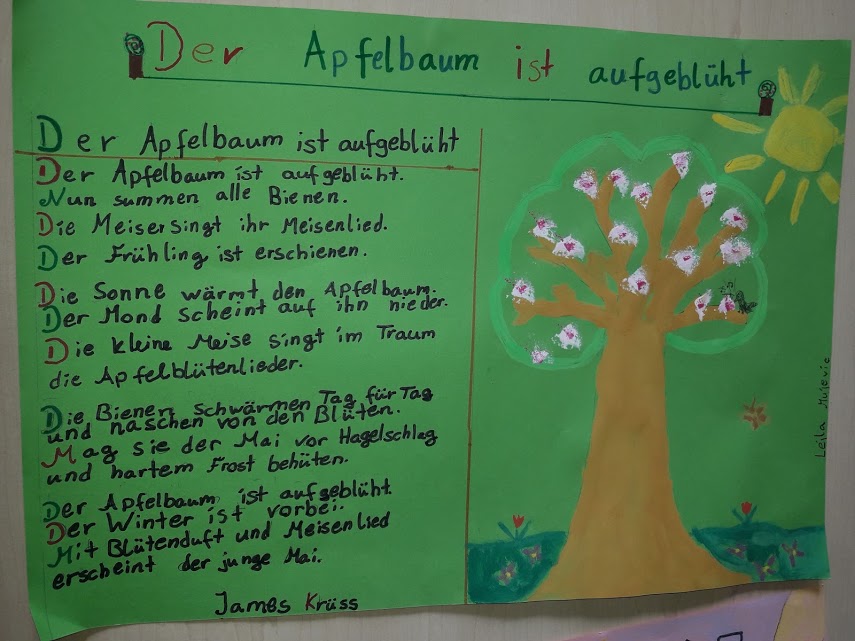 Der Apfelbaum ist aufgeblüht
Der Apfelbaum ist aufgeblüht
Der Apfelbaum ist aufgeblüht.
Nun summen alle Bienen.
Die Meisersingt ihr Meisenlied.
Der Frühling ist erschienen.
Die Sonne wärmt den Apfelbaum.
Der Mond scheint auf ihn nieder.
Die kleine Meise singt im Traum
die Apfelblütenlieder.
Die Bienen schwärmen Tag für Tag
und naschen von den Blüten.
Mag sie der Mai vor Hagelschlag
und hartem Frost behüten.
Der Apfelbaum ist aufgeblüht.
Der Winter ist vorbei.
Mit Blütenduft und Meisenlied
erscheint der junge Mai.
James Krüss
Leila Mujevic